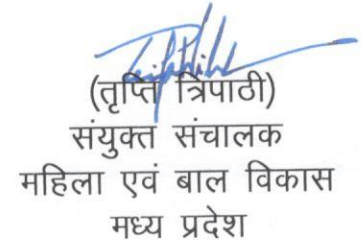 (तृप्ति त्रिपाठी)
संयुक्त संचालक
महिला एवं बाल विकास
मध्य प्रदेश